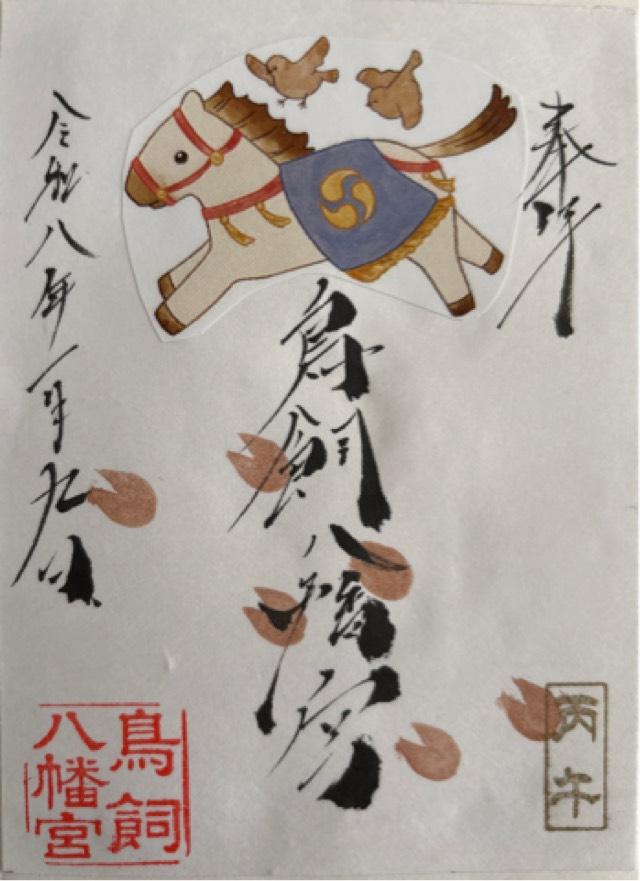 奉拝
鳥飼八幡宮
令和八年一月九日
丙午
鳥飼
八幡宮